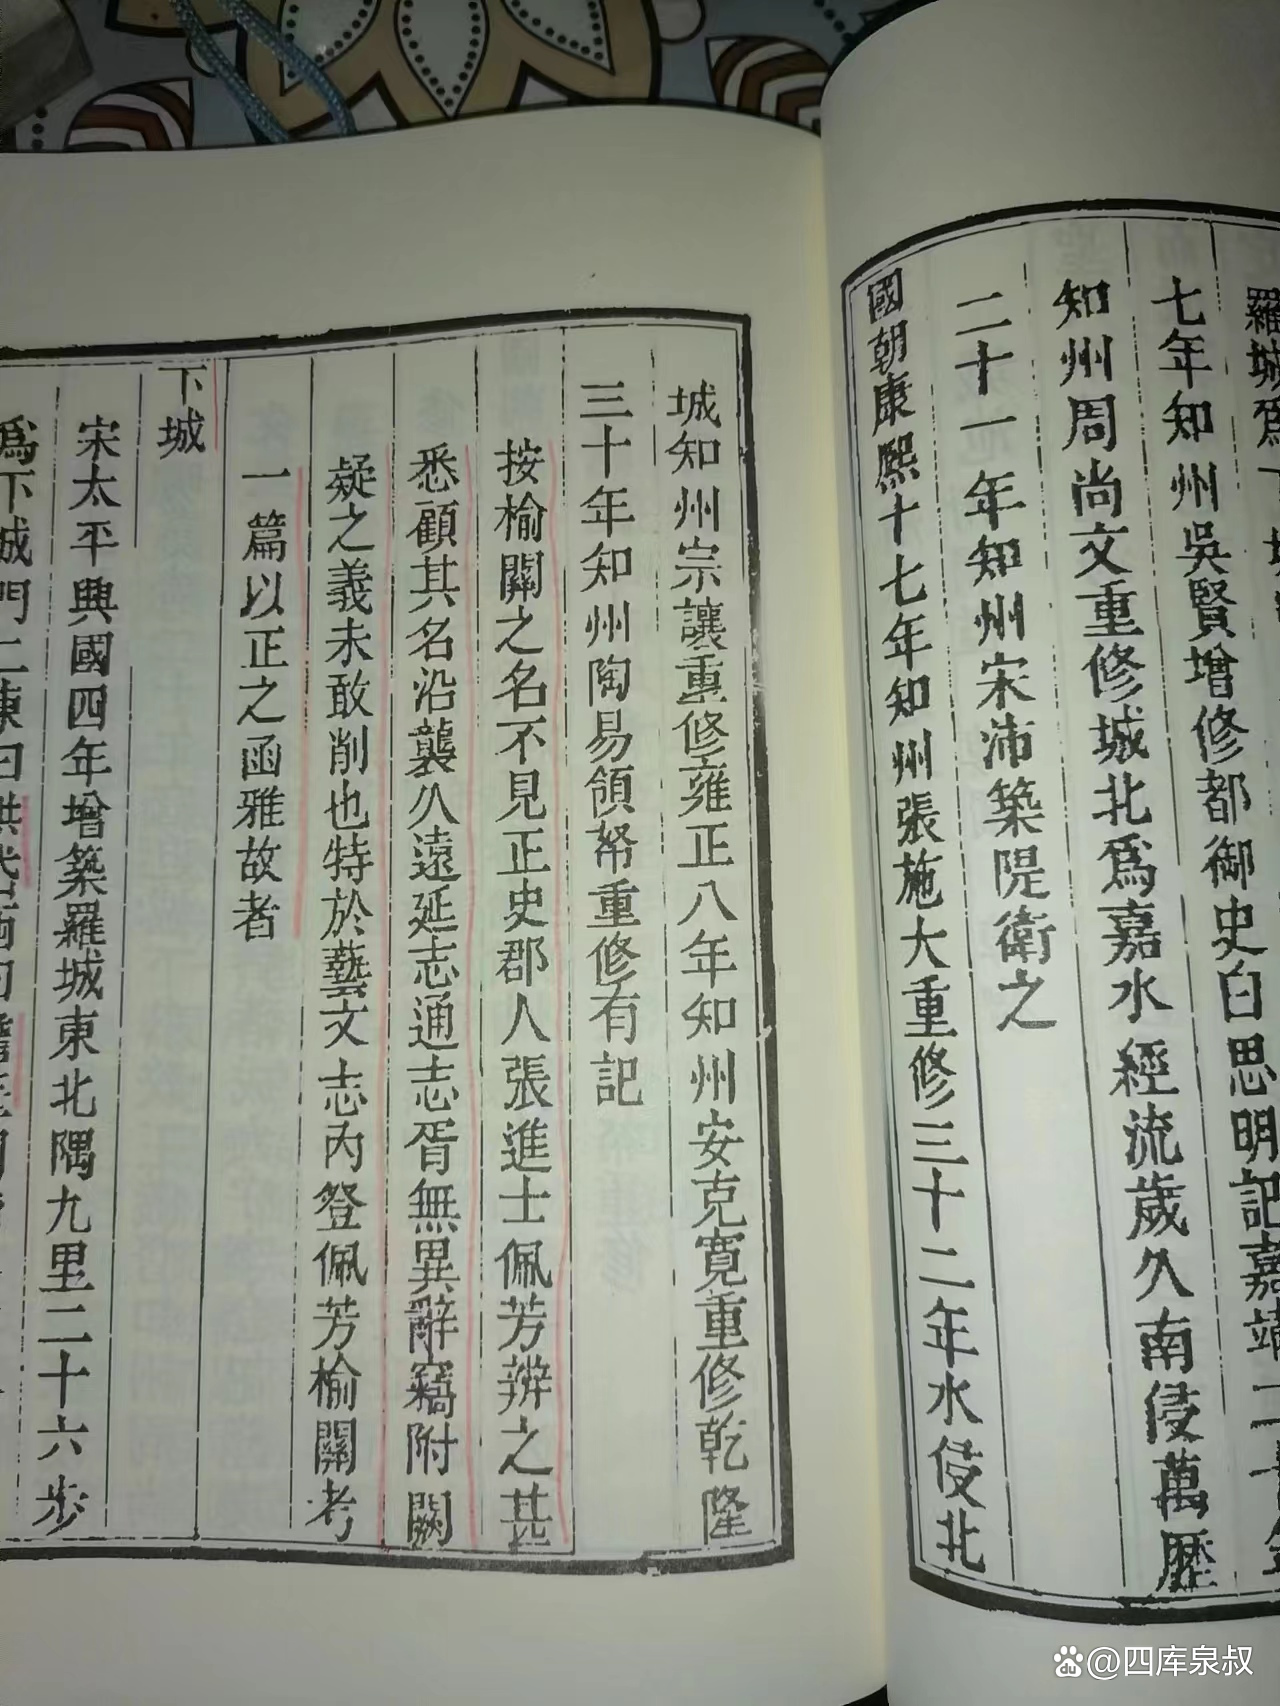 羅城爲下城
七年知州吳賢增修都御史白思明記嘉靖二十
知州周尚文重修城北爲嘉水經流歲久南侵萬歷
二十一年知州宋沛築隄衛之
國朝康熙十七年知州張施大重修三十二年水侵北
城知州宗讓重修雍正八年知州安克寬重修乾隆
三十年知州陶易領帑重修有記
按榆關之名不見正史郡人張進士佩芳辨之甚
悉顧其名沿襲久遠延志通志胥無異辭竊附闕
疑之義未敢削也特於藝文志內登佩芳榆關考
一篇以正之函雅故者
下城
宋太平興國四年增築羅城東北隅九里二十六步
爲下城門二東曰拱岱西曰
@四库泉叔